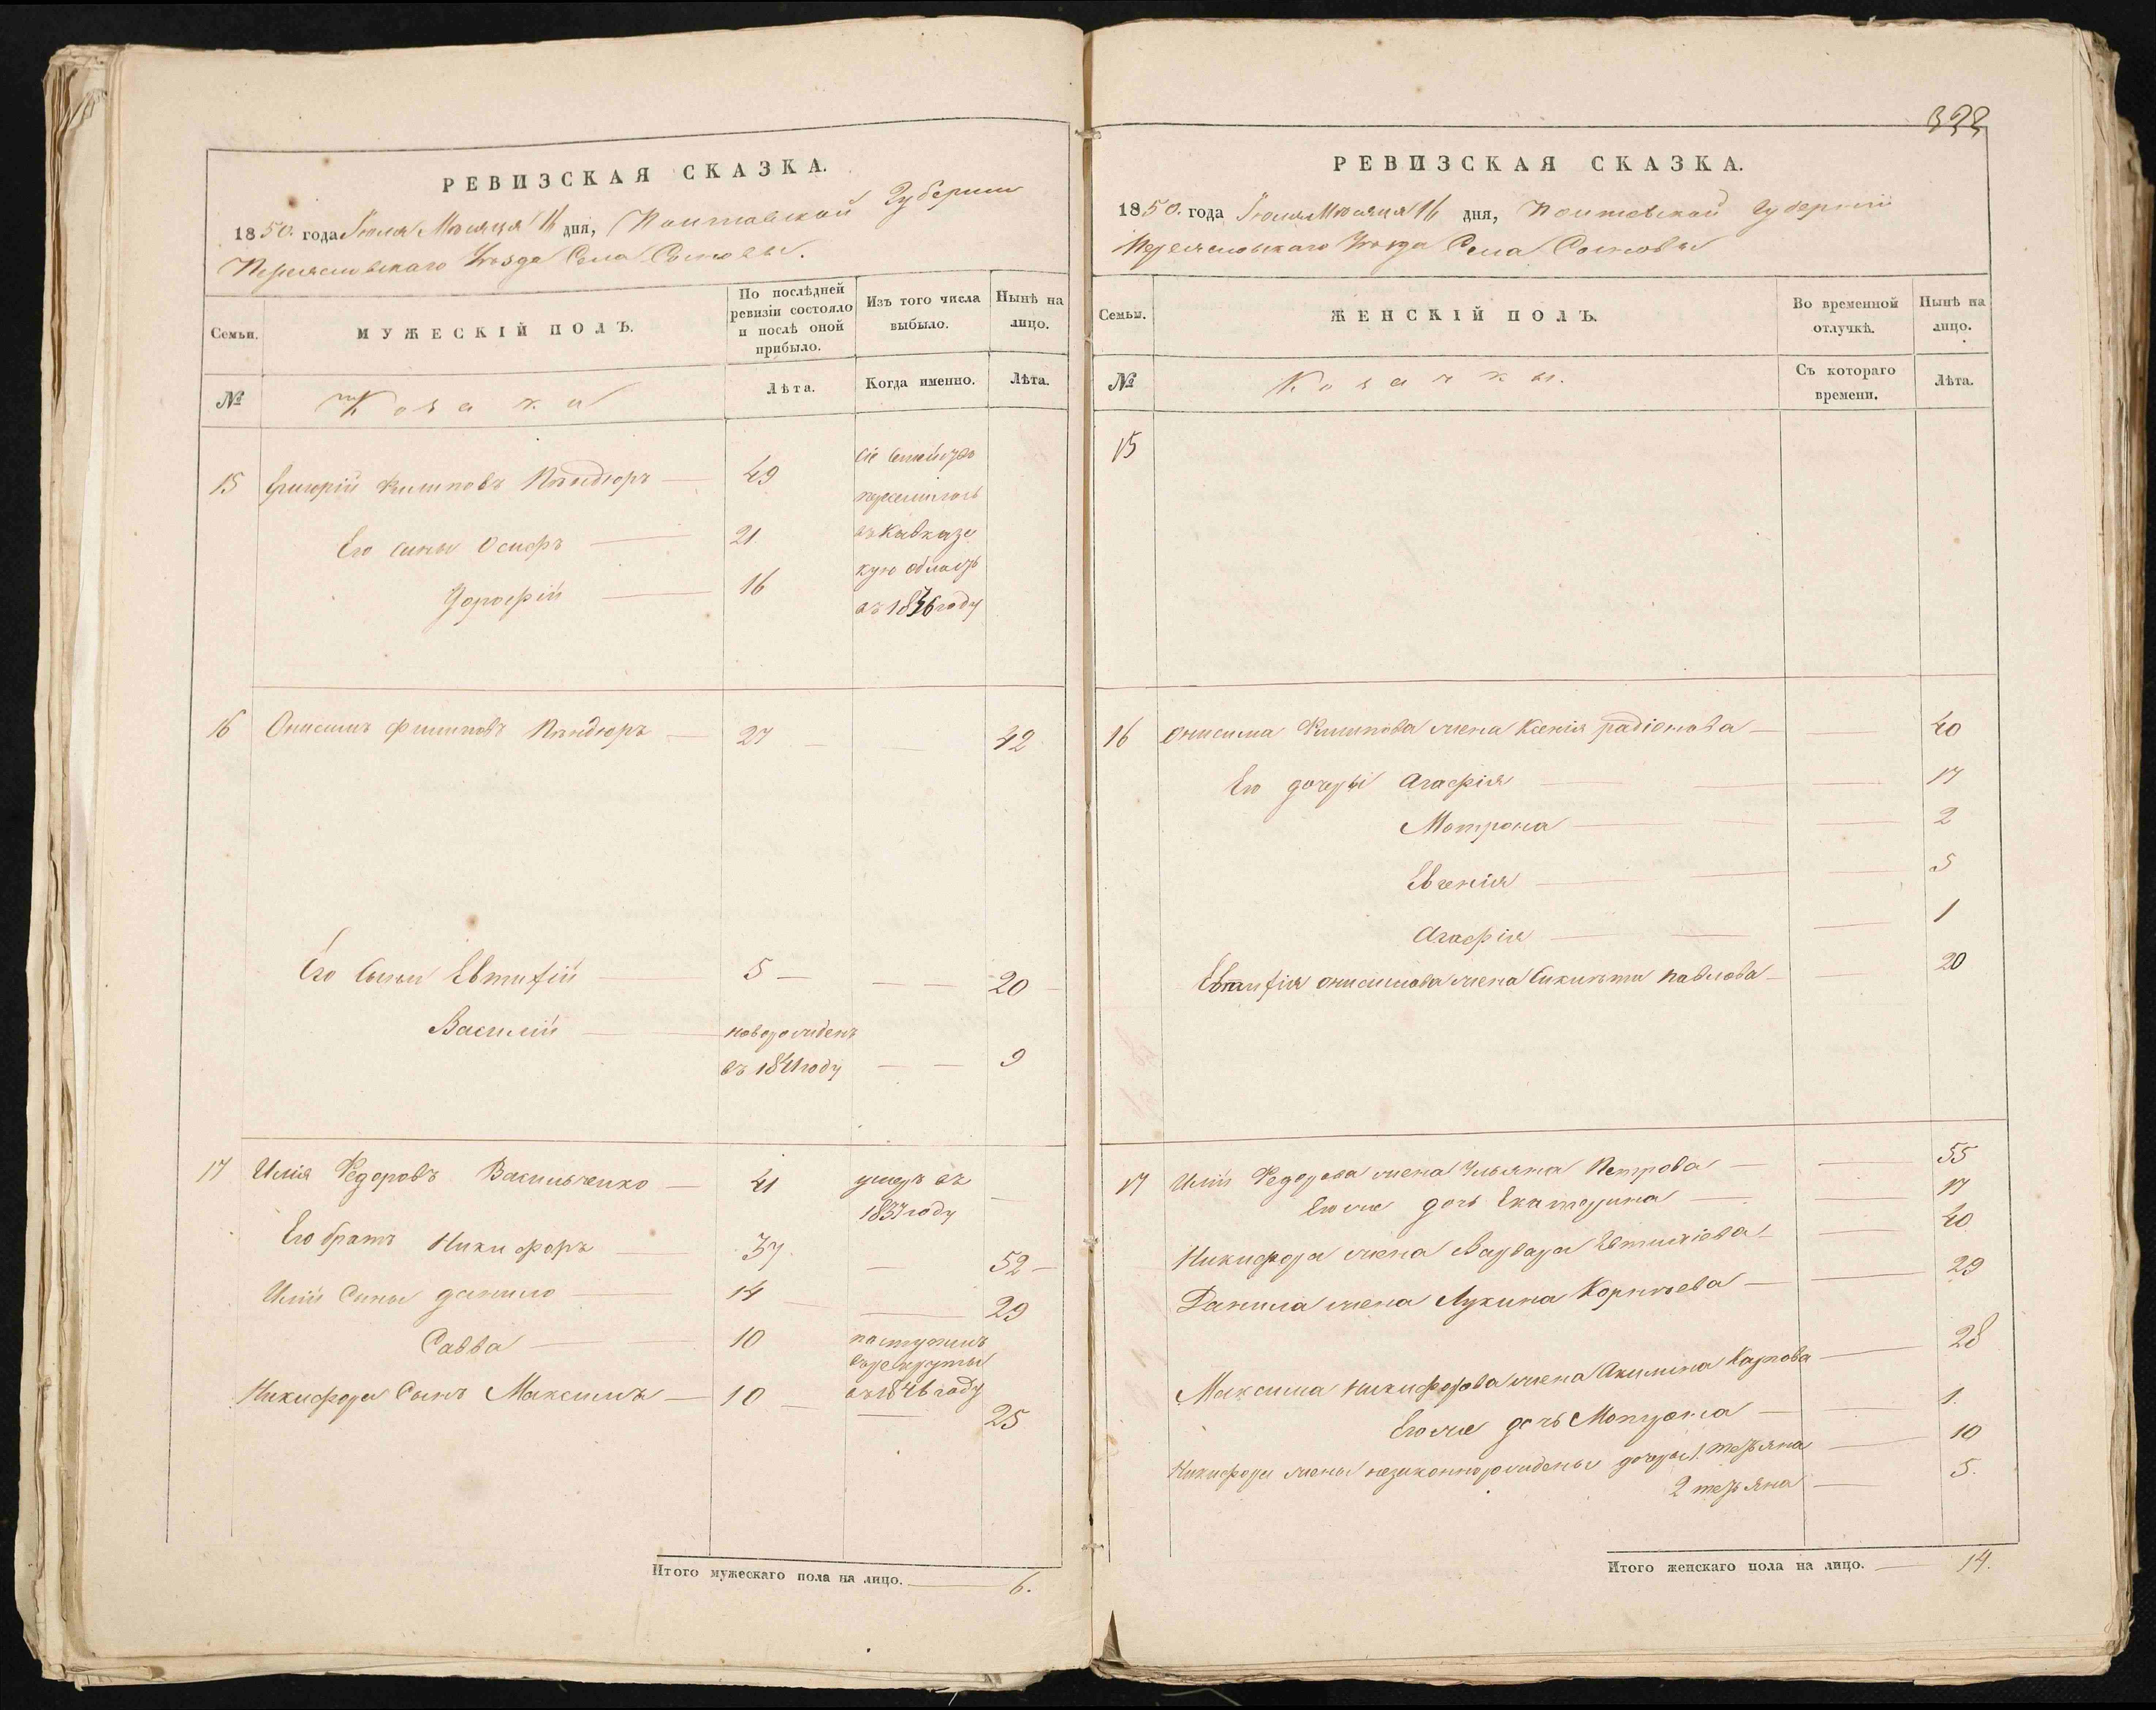 РЕВИЗСКАЯ СКАЗКА.
1850. года Іюля Мѣсяця 16 дня, Полтавской Губернии
Переясловскаго Уѣзда Села Сосновы.
Семьи.
МУЖЕСКІЙ ПОЛЪ.
По послѣдней ревизіи состояло и послѣ оной прибыло.
Изъ того числа выбыло.
Нынѣ на лицо.
№
Козаки
Лѣта.
Когда именно.
Лѣта.
15 Григорій Филиповъ Пѣндюръ 49 сіе семейство
переселилось
Его сины Осифъ 21 въ Кавказс
кую область
Дорофій 16
въ 1836 году
16 Онисимъ Филиповъ Пѣндюръ 27 42
Его Сыны Евтифій 5 20
Василій новорожденъ
въ 1841 году 9
17 Илія Федоровъ Васильченко 41 умеръ въ
1837 году
Его братъ Никифоръ 37 52
Иліи Сыны данило 14 29
Савва 10 поступилъ
в рекруты
въ 1846 году
Никифора Сынъ Максимъ 10 25
Итого мужескаго пола на лицо. 6.
323
РЕВИЗСКАЯ СКАЗКА.
1850. года Іюля Мѣсяця 16 дня, Полтавской Губерніи
Переясловскаго Уѣзда Села Сосновы
Семьи.
ЖЕНСКІЙ ПОЛЪ.
Во временной отлучкѣ.
Нынѣ на лицо.
№
Козачки.
Съ котораго времени.
Лѣта.
15
16 Онисима Филипова жена Ксенія радіонова 40
Его дочеры Агафія 17
Мотрона 2
Евгенія 5
Агафія 1
Евтифія онисимова жена павлова 20
17 Иліи Федорова жена Ульяна Петрова 55
Его же дочь Екатерина 17
Никифора жена Варвара Евтихіева 40
Данила жена Лукина Корнѣева 29
Максима Никифорова жена Акилина Карпова 28
Его же дочь Мотрона 1.
Никифора жены незаконнорожденые дочеры 1. тетяна 10
2 тетяна 5.
Итого женскаго пола на лицо. 14.